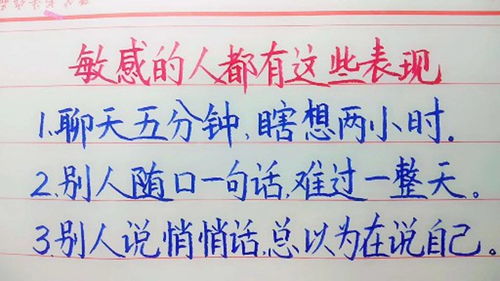 敏感的人都有这些表现
1.聊天五分钟,瞎想两小时.
2.别人随口一句话,难过一整天。
3.别人说悄悄话,总以为在说自己。